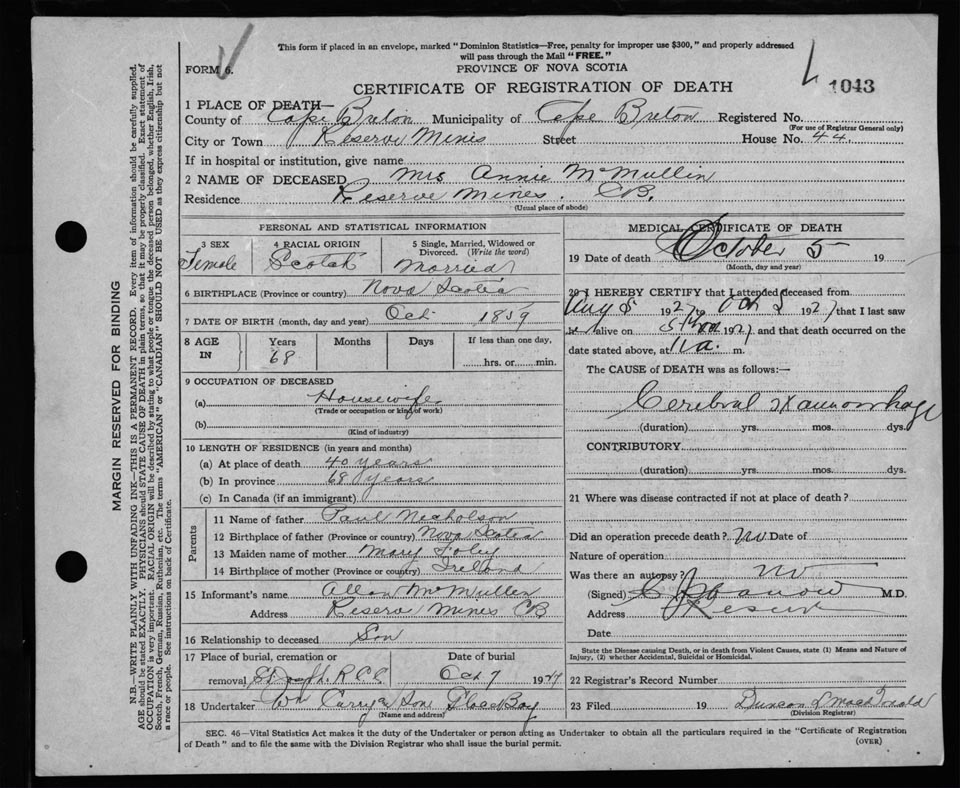 This form if placed in an envelope, marked "Dominion Statistics—Free, penalty for improper use $300," and properly addressed
will pass through the Mail "FREE."
FORM 6.
PROVINCE OF NOVA SCOTIA
CERTIFICATE OF REGISTRATION OF DEATH
1043
1 PLACE OF DEATH—
County of Cape Breton Municipality of Cape Breton Registered No.
(For use of Registrar General only)
City or Town Reserve Mines Street House No. 44.
If in hospital or institution, give name
2 NAME OF DECEASED Mrs Annie McMullin
Residence Reserve Mines. CB.
(Usual place of abode)
PERSONAL AND STATISTICAL INFORMATION
3 SEX 4 RACIAL ORIGIN 5 Single, Married, Widowed or Divorced. (Write the word)
Female Scotch Married
6 BIRTHPLACE (Province or country) Nova Scotia
7 DATE OF BIRTH (month, day and year) Oct 1859
8 AGE IN Years Months Days If less than one day,
68 hrs. or min.
9 OCCUPATION OF DECEASED
(a) Housewife
(Trade or occupation or kind of work)
(b)
(Kind of industry)
10 LENGTH OF RESIDENCE (in years and months)
(a) At place of death 40 years
(b) In province 68 years
(c) In Canada (if an immigrant)
Parents
11 Name of father Paul Nicholson
12 Birthplace of father (Province or country) Nova Scotia
13 Maiden name of mother Mary Foley
14 Birthplace of mother (Province or country) Ireland
15 Informant's name Allan McMullin
Address Reserve Mines CB
16 Relationship to deceased Son
17 Place of burial, cremation or Date of burial
removal St Joseph. R.C.C. Oct 7 1927
18 Undertaker Wm Curry & Son Glace Bay
(Name and address)
MEDICAL CERTIFICATE OF DEATH
19 Date of death October 5 19
(Month, day and year)
20 I HEREBY CERTIFY that I attended deceased from
Aug 5 1927 to Oct 5 1927 that I last saw
alive on 1927 and that death occurred on
date stated above, at 11 a. m.
The CAUSE of DEATH was as follows:—
Cerebral Haemorrhage
(duration) yrs. mos. dys.
CONTRIBUTORY.
(duration) yrs. mos. dys.
21 Where was disease contracted if not at place of death?
Did an operation precede death? no Date of
Nature of operation
Was there an autopsy? no
(Signed) M.D.
Address Reserve
Date
State the Disease causing Death, or in death from Violent Causes, state (1) Means and Nature of
Injury, (2) whether Accidental, Suicidal or Homicidal.
22 Registrar's Record Number
23 Filed 19 Duncan L MacDonald
(Division Registrar)
SEC. 46—Vital Statistics Act makes it the duty of the Undertaker or person acting as Undertaker to obtain all the particulars required in the "Certificate of Registration
of Death" and to file the same with the Division Registrar who shall issue the burial permit.
(OVER)
MARGIN RESERVED FOR BINDING
N.B.—WRITE PLAINLY WITH UNFADING INK—THIS IS A PERMANENT RECORD. Every item of information should be carefully supplied.
AGE should be stated EXACTLY. PHYSICIANS should STATE CAUSE OF DEATH in plain terms, so that it may be properly classified. Exact statement of
OCCUPATION is very important. RACIAL ORIGIN will be described by stating to what people or tongue the deceased person belonged, whether English, Irish,
Scotch, French, German, Russian, Ruthenian, etc. The terms "AMERICAN" or "CANADIAN" SHOULD NOT BE USED as they express citizenship but not
a race or people. See instructions on back of Certificate.